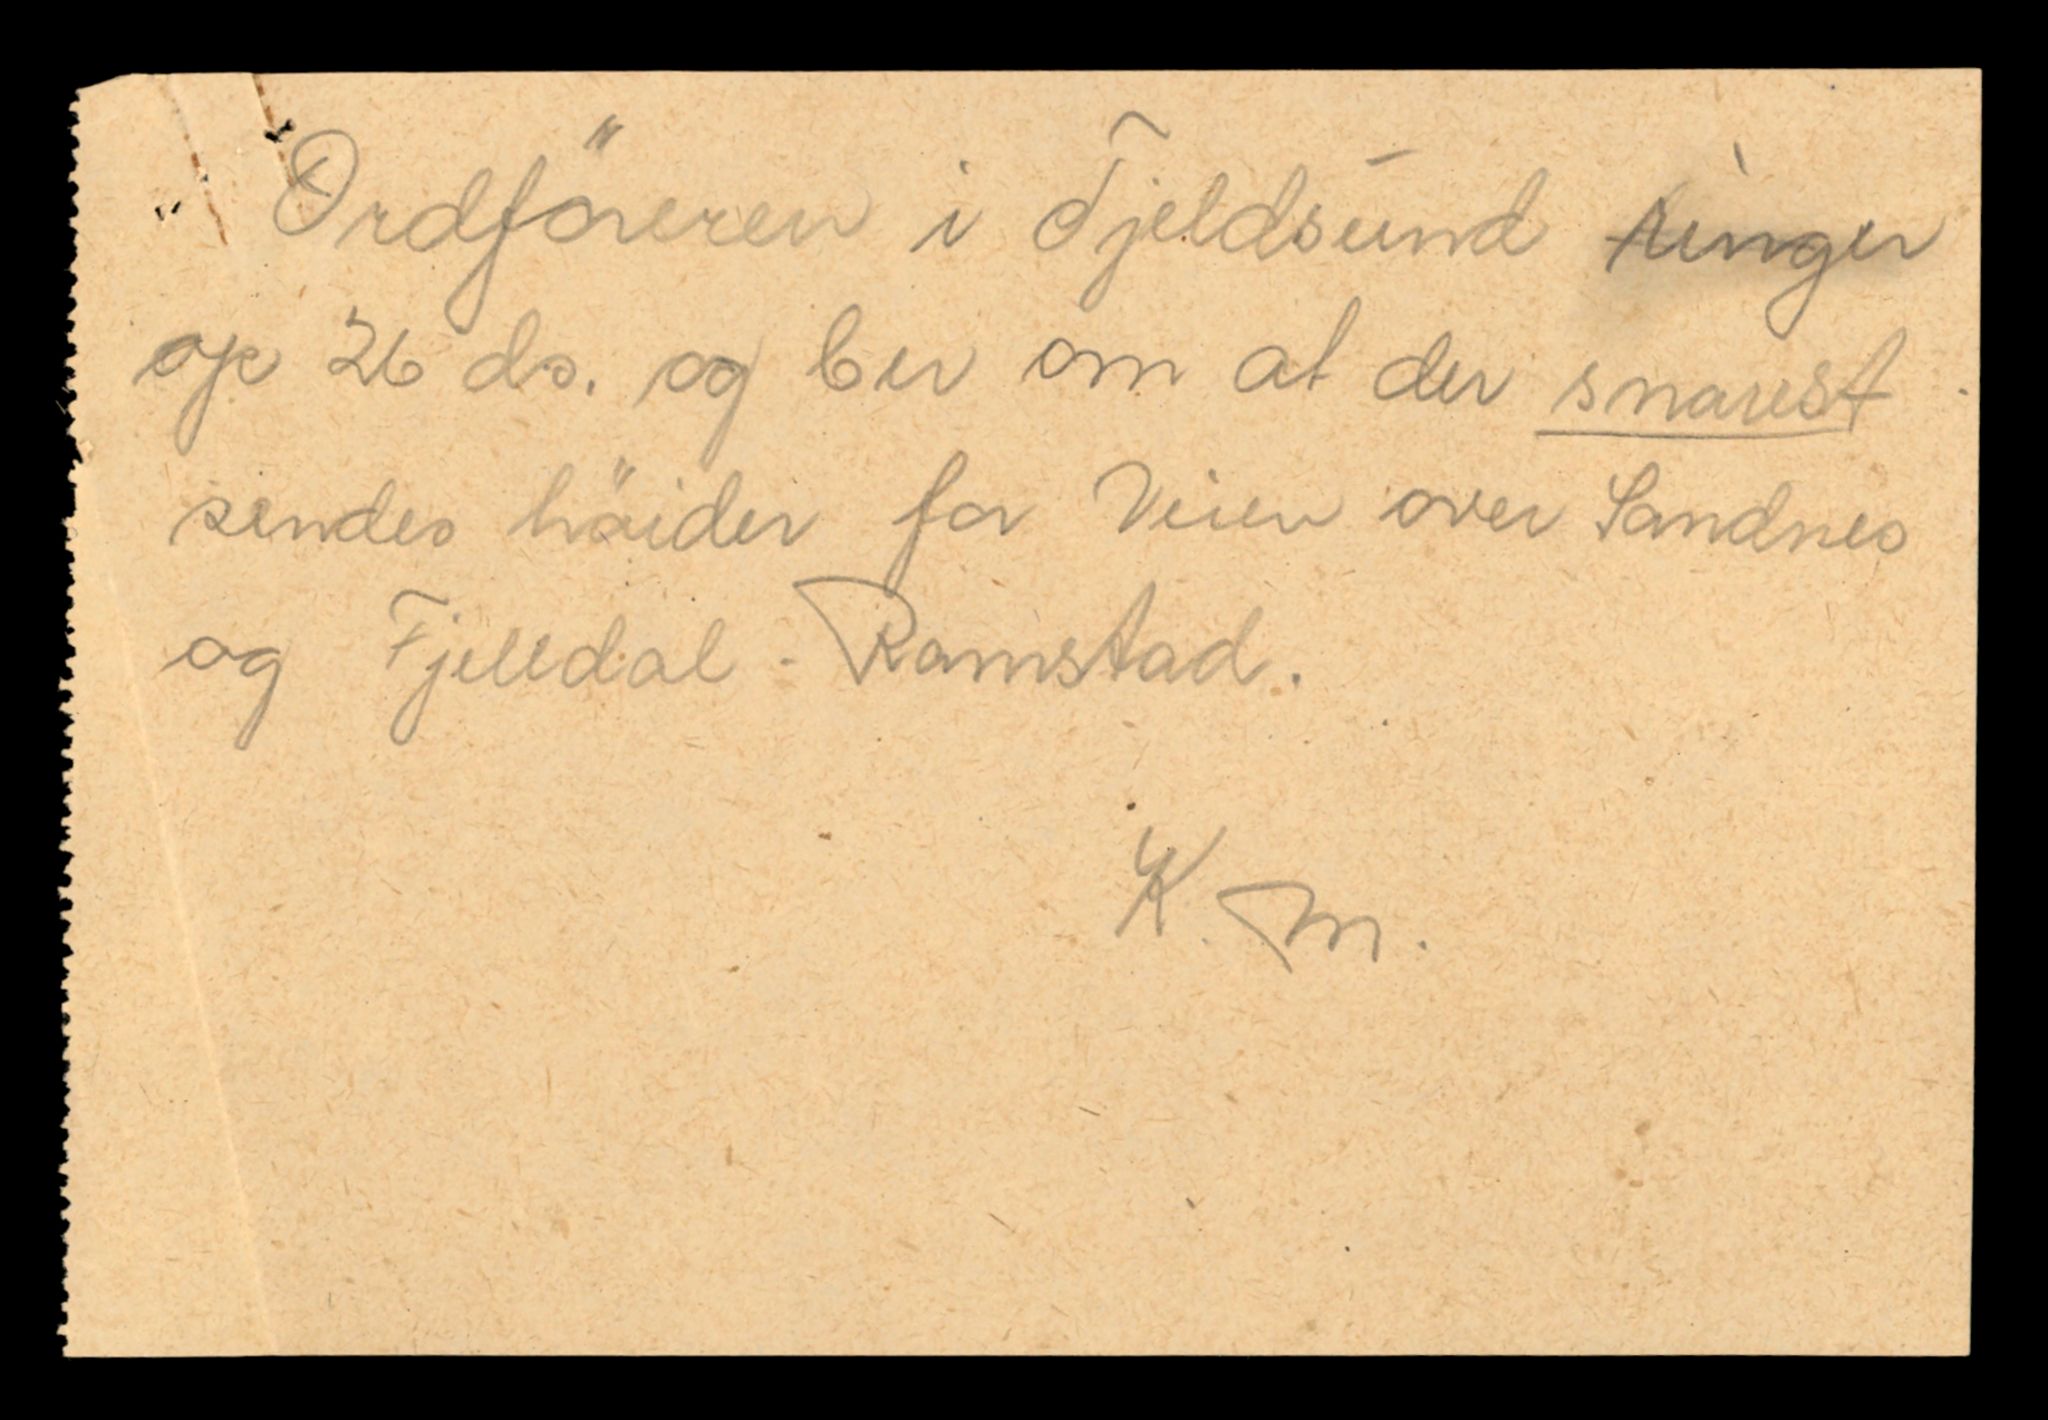 Ordföreren i Fjeldsund ringer
op 26 ds. og ber om at der snarest
sendes höider for Veien over Sandnes
og Fjelldal - Ramstad.
K. M.